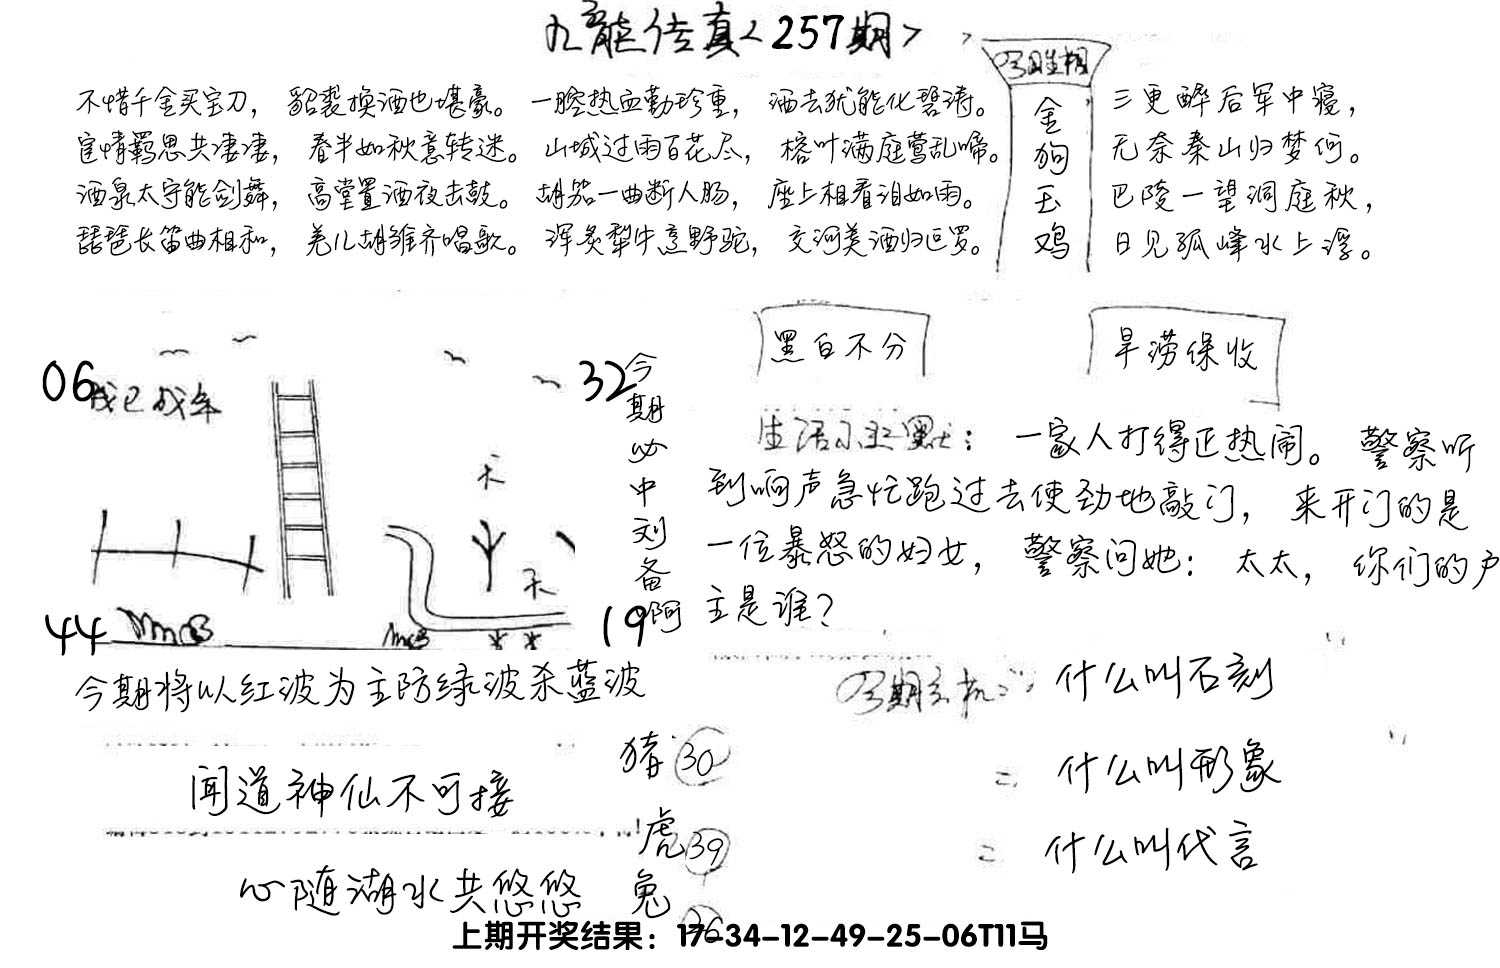 九龙传真<257期>
不惜千金买宝刀，貂裘换酒也堪豪。一腔热血勤珍重，洒去犹能化碧涛。
宦情羁思共凄凄，春半如秋意转迷。山城过雨百花尽，榕叶满庭莺乱啼。
酒泉太守能剑舞，高堂置酒夜击鼓。胡笳一曲断人肠，座上相看泪如雨。
琵琶长笛曲相和，羌儿胡雏齐唱歌。浑炙犁牛烹野驼，交河美酒归叵罗。
今期生相
金
狗
玉
鸡
三更醉后军中寝，
无奈秦山归梦何。
巴陵一望洞庭秋，
日见孤峰水上浮。
06
32
天
天
44
19
今期必中刘备啊
黑白不分
旱涝保收
生活小幽默：一家人打得正热闹。警察听
到响声急忙跑过去使劲地敲门，来开门的是
一位暴怒的妇女，警察问她：太太，你们的户
主是谁？
今期将以红波为主防绿波杀蓝波
今期玄机 什么叫石刻
二 什么叫形象
二 什么叫代言
闻道神仙不可接
心随湖水共悠悠
猪 30
虎 39
兔 36
上期开奖结果：17-34-12-49-25-06T11马